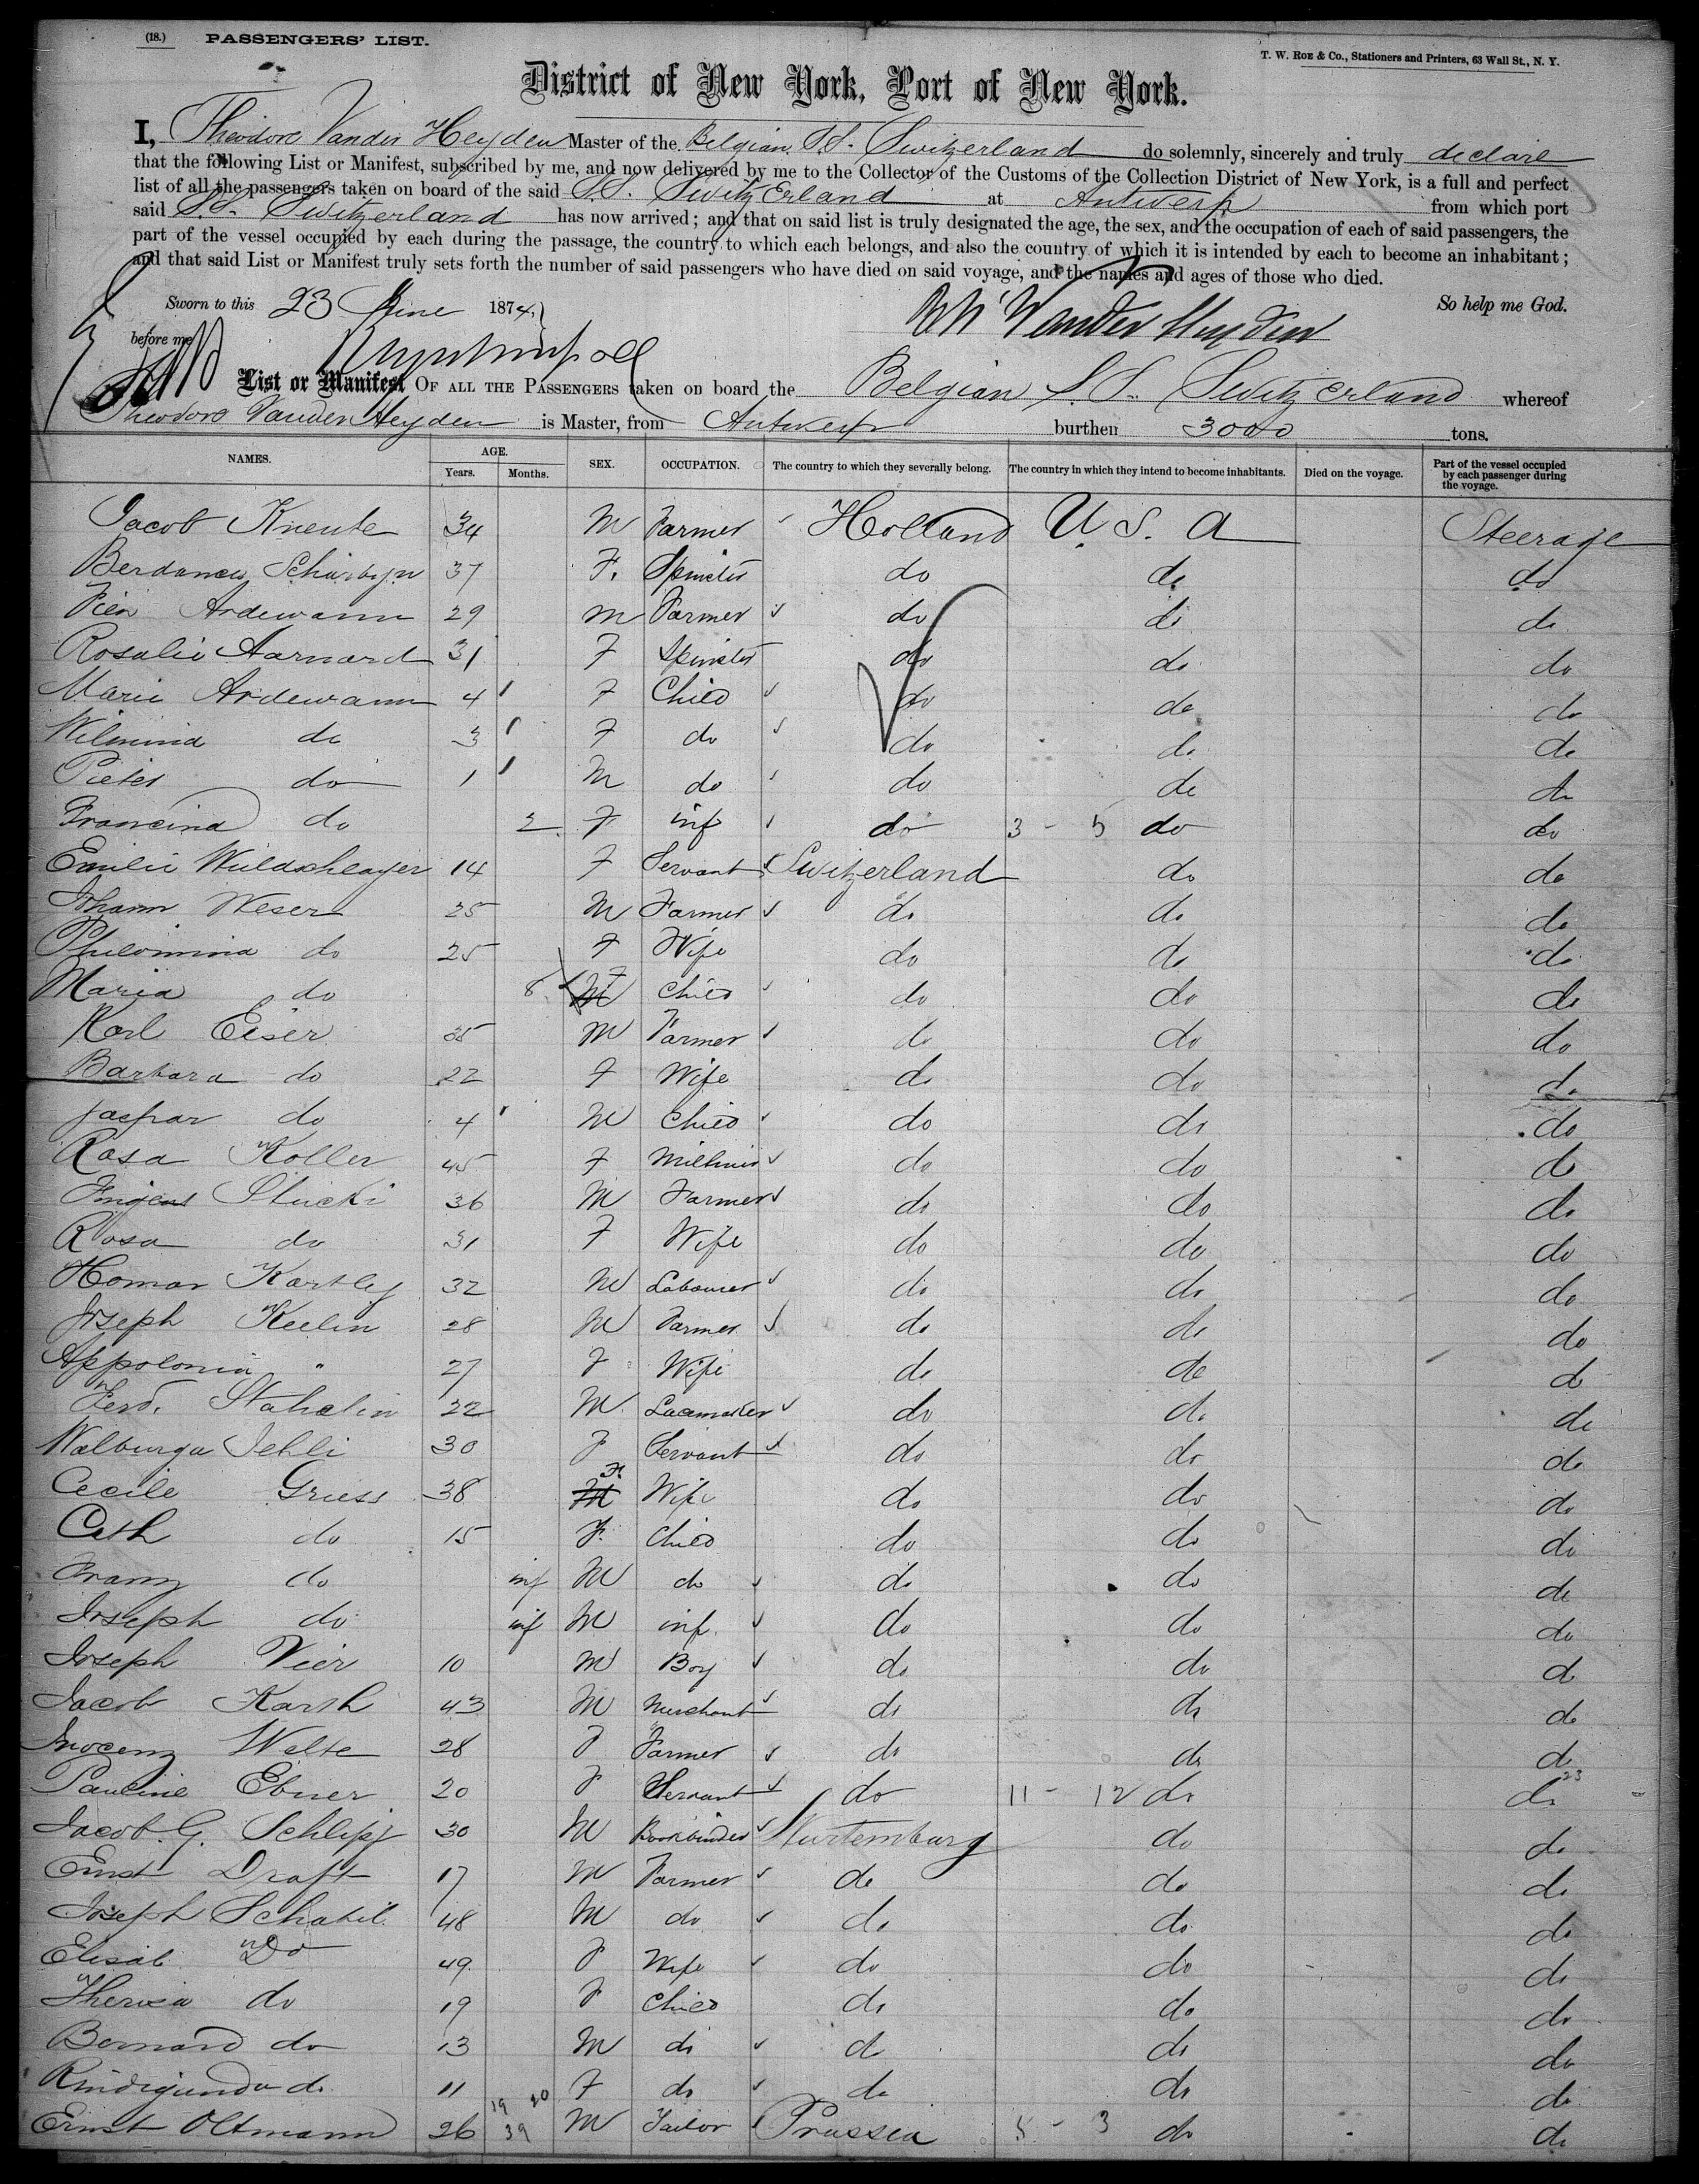 (18.) PASSENGERS' LIST.
T. W. ROE & Co., Stationers and Printers, 63 Wall St., N. Y.
District of New York, Port of New York.
I, Theodore Vander Heyden Master of the Belgian S.S. Switzerland do solemnly, sincerely and truly declare
that the following List or Manifest, subscribed by me, and now delivered by me to the Collector of the Customs of the Collection District of New York, is a full and perfect
list of all the passengers taken on board of the said S.S. Switzerland at Antwerp from which port
said S.S. Switzerland has now arrived; and that on said list is truly designated the age, the sex, and the occupation of each of said passengers, the
part of the vessel occupied by each during the passage, the country to which each belongs, and also the country of which it is intended by each to become an inhabitant;
and that said List or Manifest truly sets forth the number of said passengers who have died on said voyage, and the names and ages of those who died.
Sworn to this 23 June 1874, So help me God.
before me Vander Heyden
List or Manifest OF ALL THE PASSENGERS taken on board the Belgian S.S. Switzerland whereof
Theodore Vander Heyden is Master, from Antwerp burthen 3000 tons.
NAMES. AGE. Years. Months. SEX. OCCUPATION. The country to which they severally belong. The country in which they intend to become inhabitants. Died on the voyage. Part of the vessel occupied by each passenger during the voyage.
Jacob Kneute 34 M Farmer Holland U.S.A Steerage
37 F. Spinster do do do
Ardewann 29 M Farmer do do do
Rosalie Aarnard 31 F Spinster do do do
Marie Ardewann 4 F Child do do do
Wilmina do 3 F do do do do
Pieter do 1 M do do do do
Francina do 2 F inf do 3 - 5 do do
Emilie Wuldschlager 14 F Servant Switzerland do do
Johann Weser 25 M Farmer do do do
Philomina do 25 F Wife do do do
Maria do 8 F Child do do do
Karl Eiser 35 M Farmer do do do
Barbara do 22 F Wife do do do
Jaspar do 4 M Child do do do
Rosa Koller 45 F Milliner do do do
Stucki 36 M Farmer do do do
Rosa do 31 F Wife do do do
Homar Kartley 32 M Labourer do do do
Joseph Keelin 28 M Farmer do do do
Appolonia " 27 F Wife do do do
Ferd. Stahelin 22 M Lacemaker do do do
Walburga Jehli 30 F Servant do do do
Cecile Griess 38 F. Wife do do do
Cath do 15 F. Child do do do
Franz do inf M do do do do
Joseph do inf M inf. do do do
Joseph Vier 10 M Boy do do do
Jacob Karsh 43 M Merchant do do do
Inocenz Welte 28 F Farmer do do do
Pauline Ebner 20 F Servant do 11 - 12 do do 23
Jacob. G. Schlipf 30 M Bookbinder Wurtemburg do do
Ernst Draft 17 M Farmer do do do
Joseph Schabil. 48 M do do do do
Elisab. Do 49 F Wife do do do
Theresa do 19 F Child do do do
Bernard do 13 M do do do do
Kindigunda do 11 F do do do do
19 20
Ernst Oltmann 26 39 M Tailor Prussia 5 - 3 do do